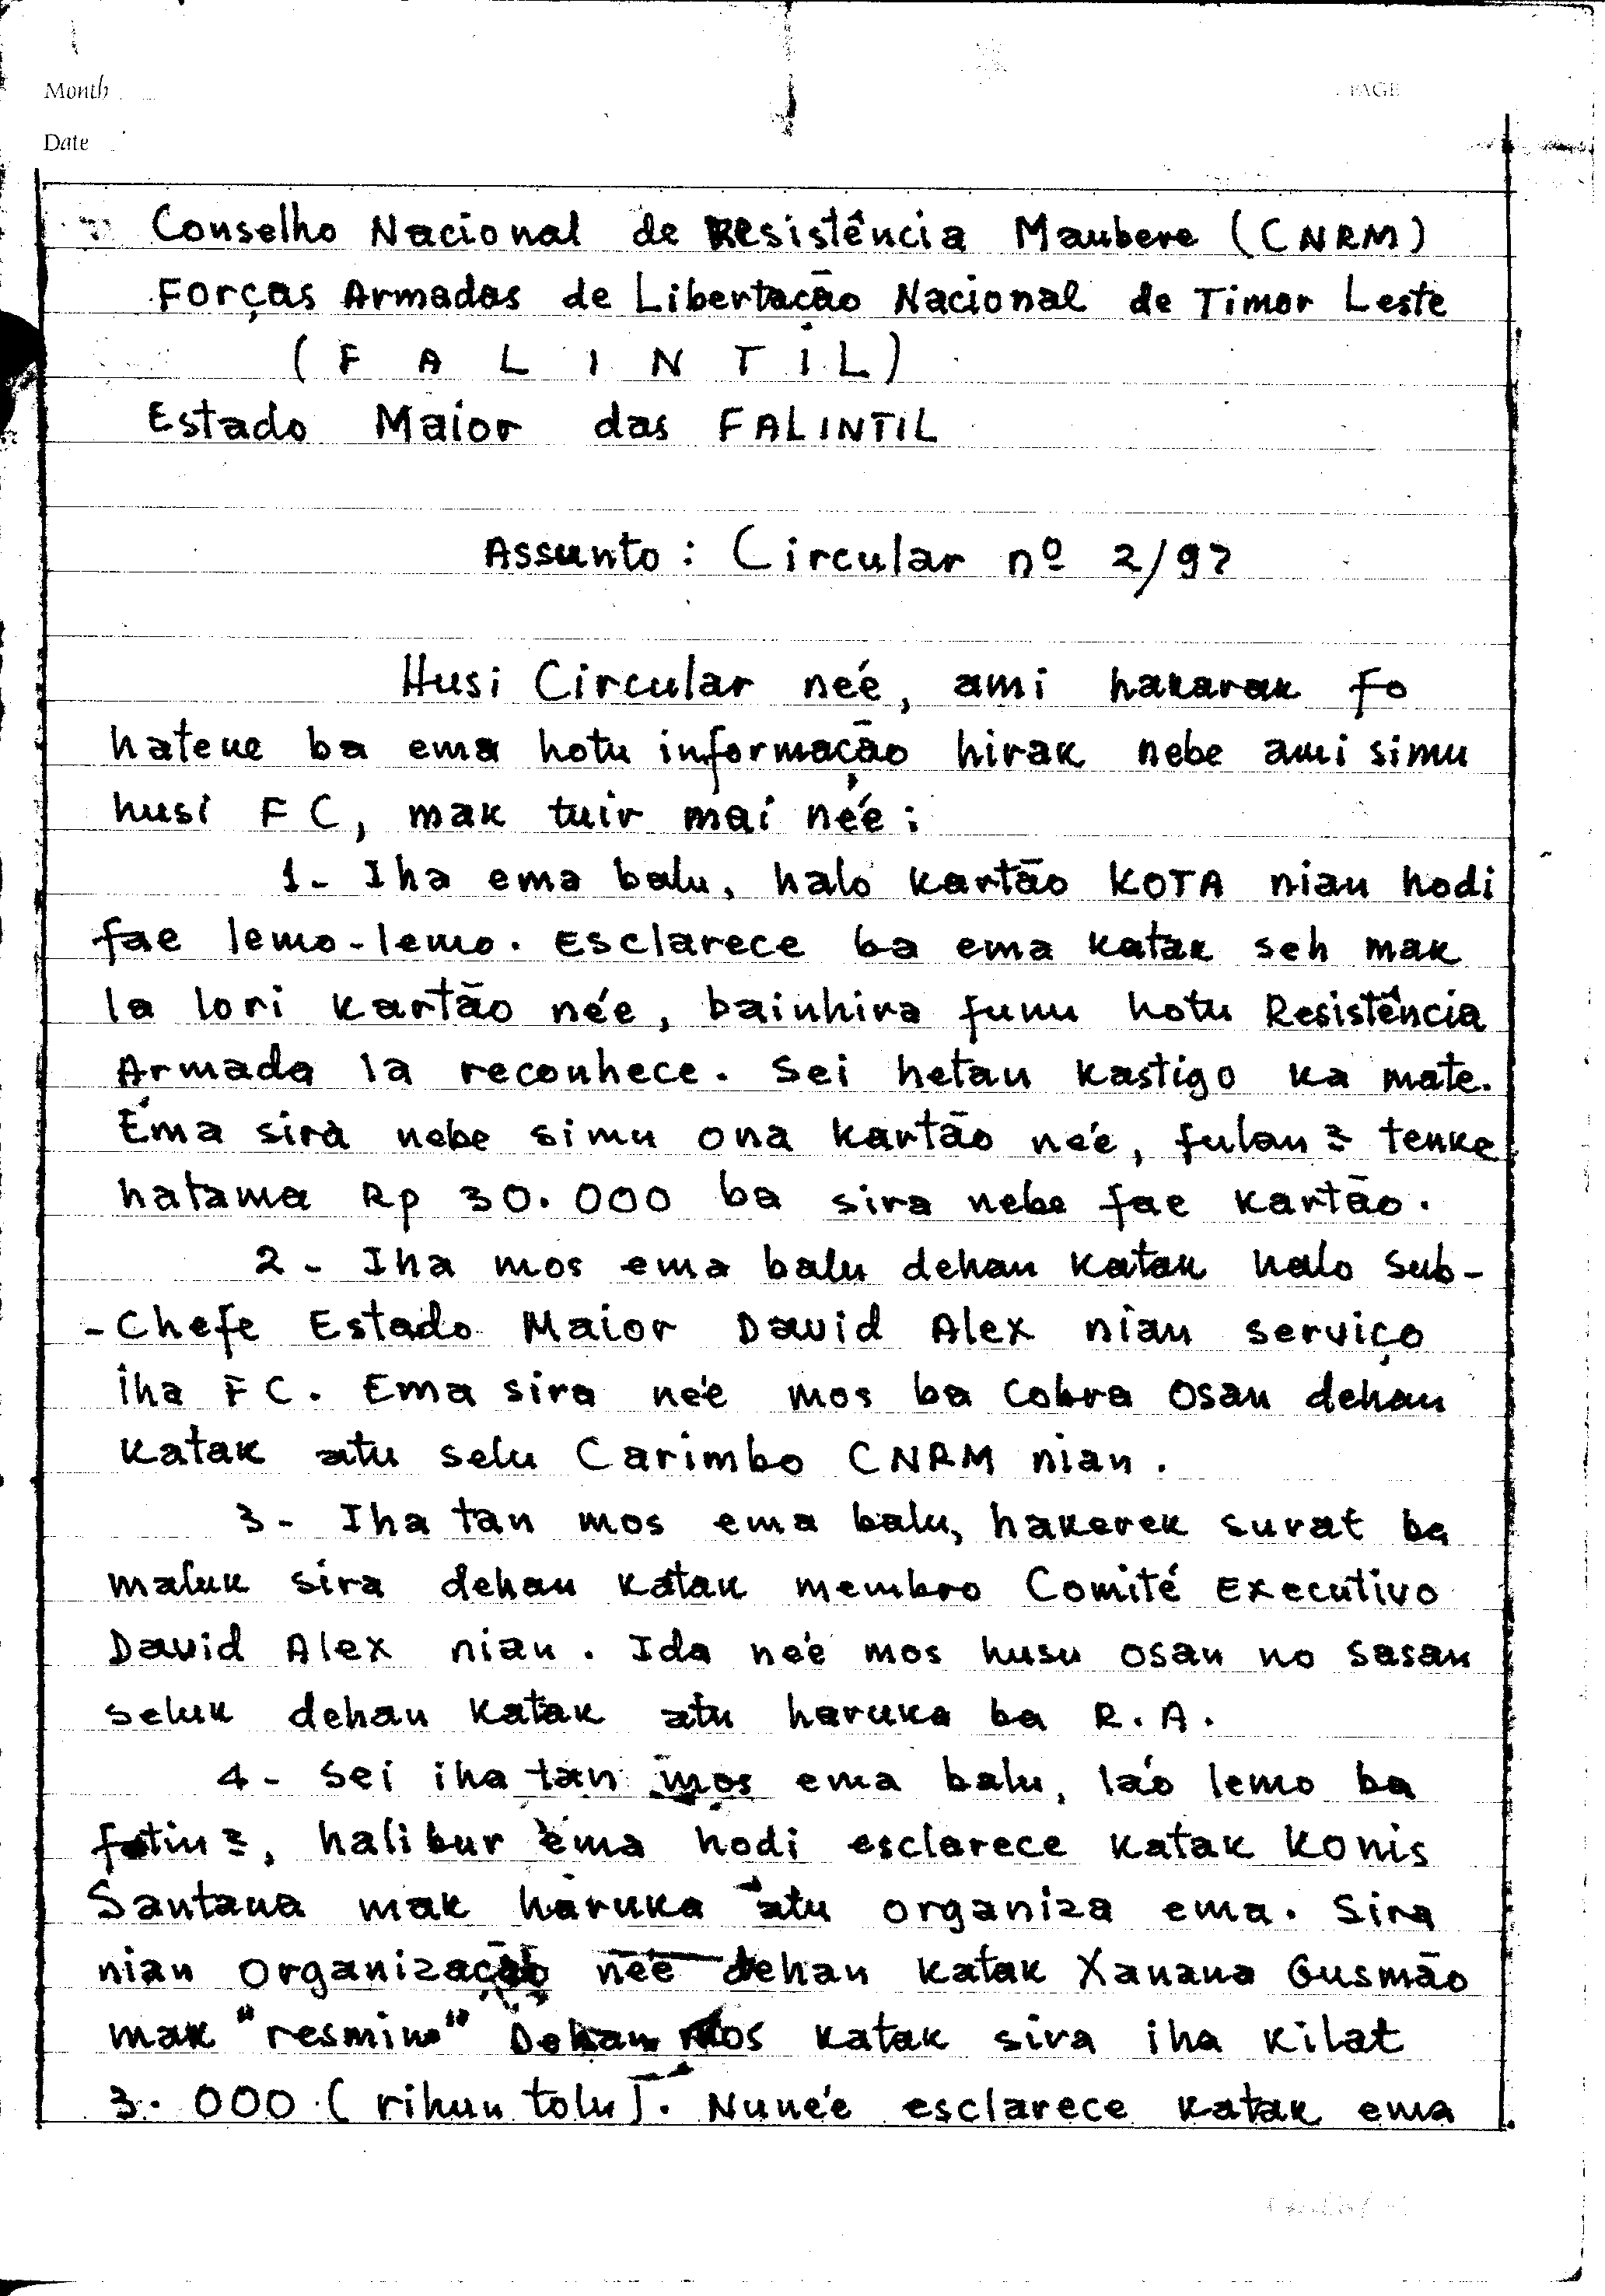 Month
PAGE
Date
Conselho Nacional de Resistência Maubere (CNRM)
Forças Armadas de Libertação Nacional de Timor Leste
( F A L I N T I L )
Estado Maior das FALINTIL
Assunto : Circular nº 2/97
Husi Circular neé, ami hakarak fo
hatene ba ema hotu informação hirak nebe ami simu
husi FC, mak tuir mai neé :
1- Iha ema balu, halo kartão KOTA nian hodi
fae lemo-lemo. Esclarece ba ema katak seh mak
la lori kartão née, bainhira funu hotu Resistência
Armada la reconhece. Sei hetan kastigo ka mate.
Ema sira nebe simu ona kartão neé, fulan 2 tenke
hatama Rp 30.000 ba sira nebe fae kartão.
2- Iha mos ema balu dehan katak halo Sub-
-Chefe Estado Maior David Alex nian serviço
iha FC. Ema sira neé mos ba cobra osan dehan
katak atu selu Carimbo CNRM nian.
3- Iha tan mos ema balu, hakerek surat ba
maluk sira dehan katak membro Comité Executivo
David Alex nian. Ida neé mos husu osan no sasan
seluk dehan katak atu haruka ba R.A.
4- Sei iha tan mos ema balu, láo lemo ba
fatin 2, halibur ema hodi esclarece katak Konis
Santana mak haruka atu organiza ema. Sira
nian organização neé dehan katak Xanana Gusmão
mak "resmino" Dehan mos katak sira iha kilat
3.000 (rihun tolu). Nuneé esclarece katak ema